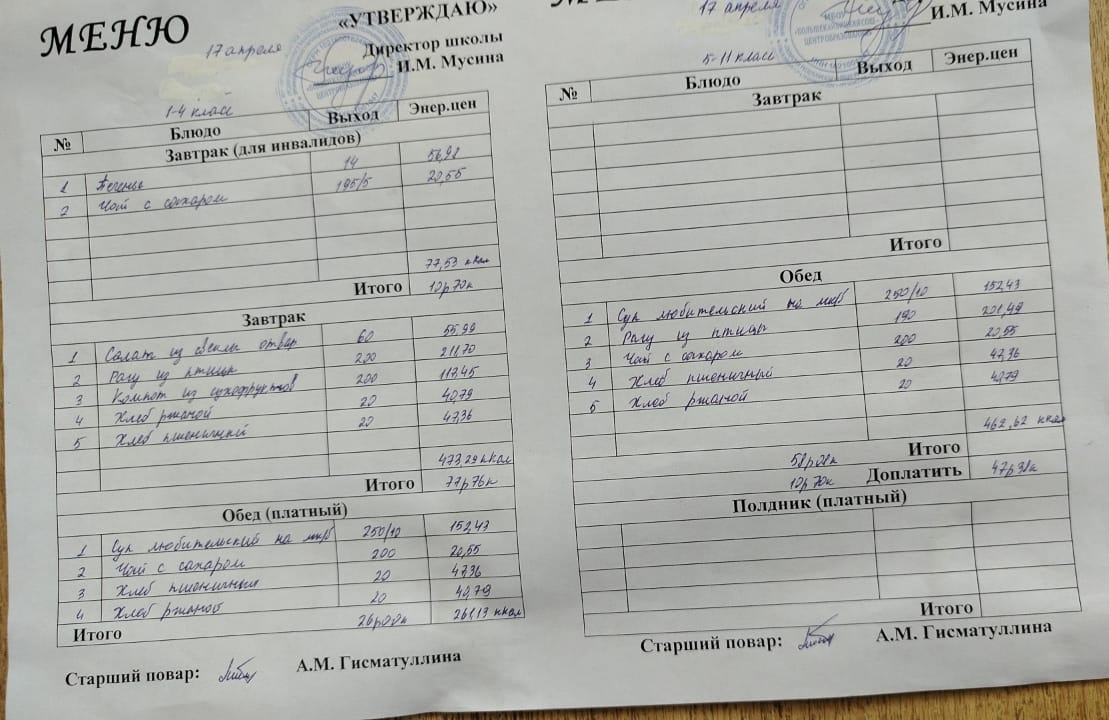 МЕНЮ
«УТВЕРЖДАЮ»
17 апреля
Директор школы
И.М. Мусина
1-4 класс
№ Блюдо Выход Энер.цен
Завтрак (для инвалидов)
1 Печенье 14 56,98
2 Чай с сахаром 195/5 20,55
77,53 ккал
Итого 10р70к
Завтрак
1 Салат из свеклы отвар 60 55,99
2 Рагу из птицы 200 211,70
3 Компот из сухофруктов 200 113,45
4 Хлеб ржаной 20 40,79
5 Хлеб пшеничный 20 47,36
473,29 ккал
Итого 77р76к
Обед (платный)
1 Суп любительский на мкб 250/10 152,43
2 Чай с сахаром 200 20,55
3 Хлеб пшеничный 20 47,36
4 Хлеб ржаной 20 40,79
Итого 26р00к 261,13 ккал
Старший повар: А.М. Гисматуллина
17 апреля
И.М. Мусина
5-11 класс
№ Блюдо Выход Энер.цен
Завтрак
Итого
Обед
1 Суп любительский на мкб 250/10 152,43
2 Рагу из птицы 190 201,49
3 Чай с сахаром 200 20,55
4 Хлеб пшеничный 20 47,36
5 Хлеб ржаной 20 40,79
462,62 ккал
58р08к Итого
10р70к Доплатить 47р38к
Полдник (платный)
Итого
Старший повар: А.М. Гисматуллина